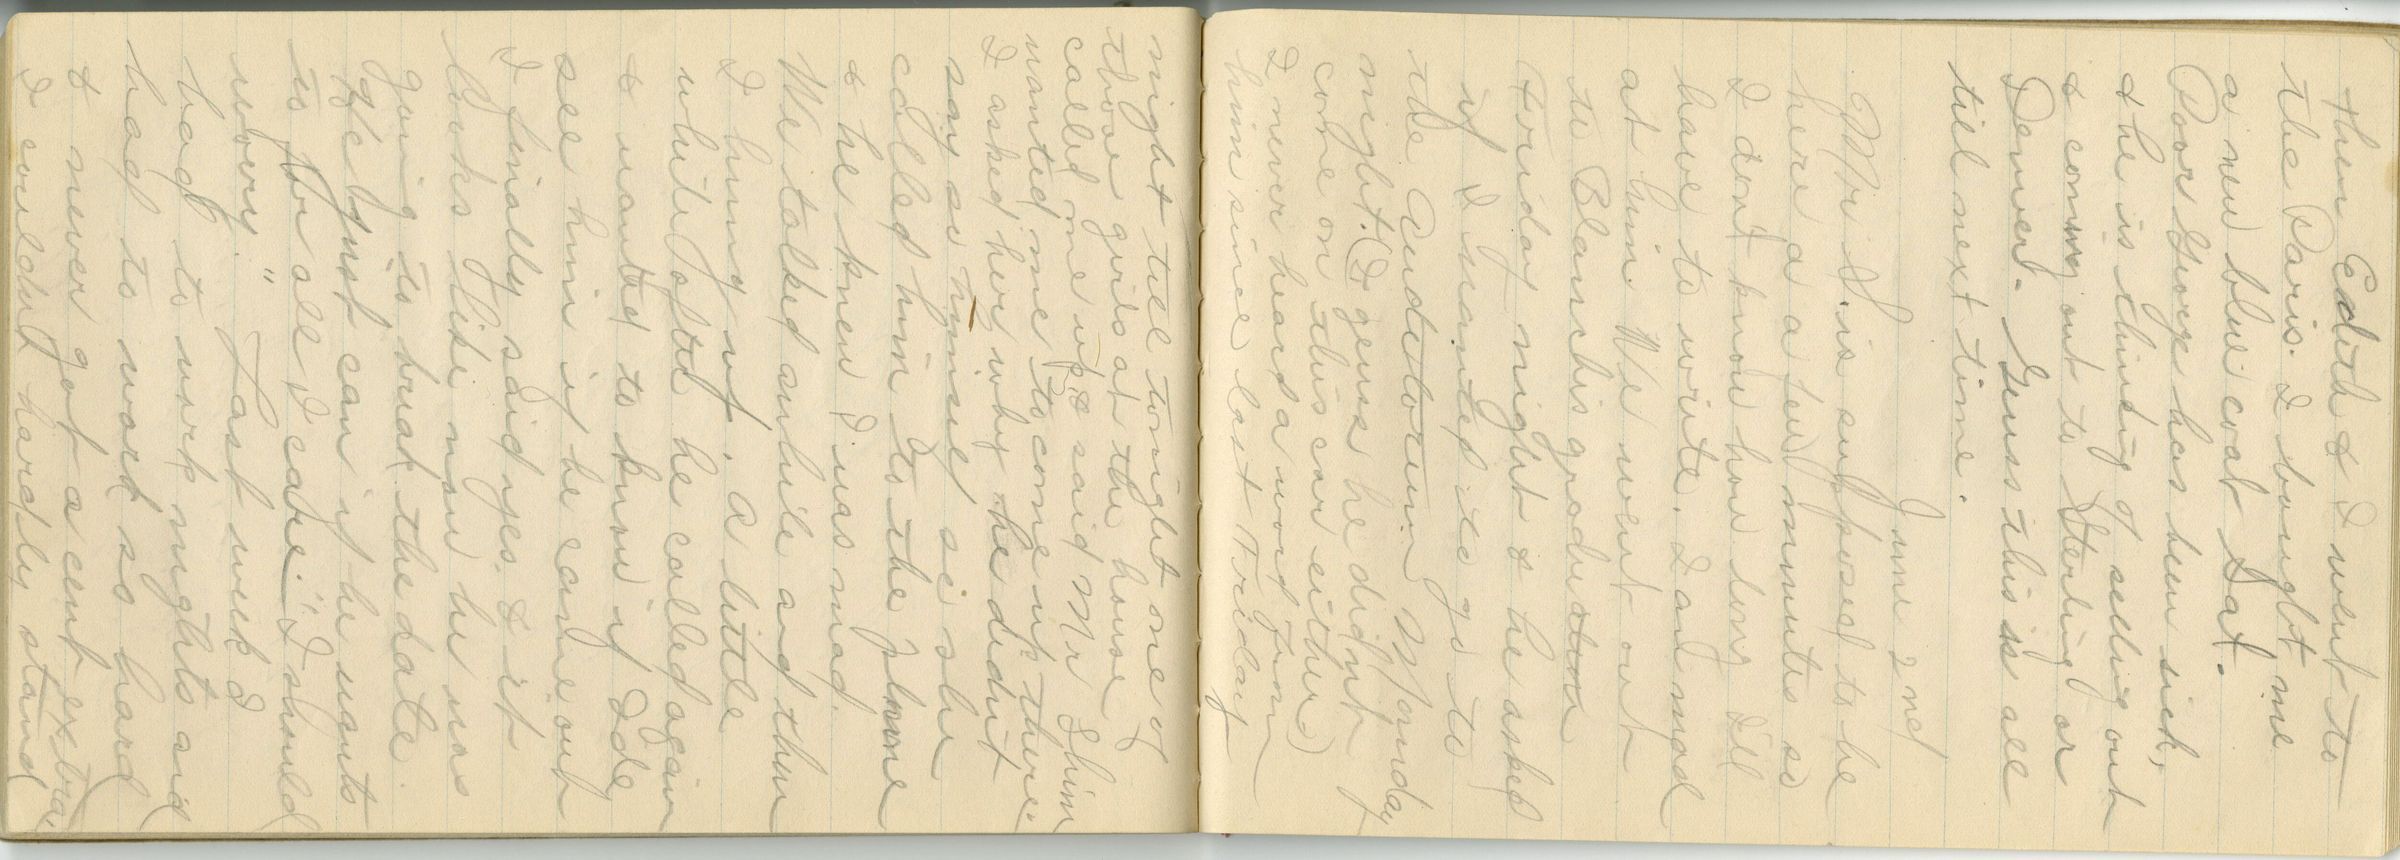 then Edith & I went to
the Paris. I bought me
a new blue coat Sat.
Poor George has been sick,
& he is thinking of selling out
& coming out to Sterling or
Denver. Guess this is all
til next time.
June 2nd
Mr S. is supposed to be
here a a few minutes so
I dont know how long I'll
have to write. I am mad
at him. We went out
to Blanchs graduation
Friday night & he asked
if I wanted to go to
the Auditorium Monday
night. (I guess he didnt
come on this car either)
I never heard a word from
him since last Friday
night till tonight one of
those girls at the house
called me up & said Mr Shinn
wanted me to come up there.
I asked her why he didnt
say so himself so she
called him to the phone
& he knew I was mad.
We talked awhile and then
I hung up. A little
while after he called again
& wanted to know if I'd
see him if he came out
I finally said yes. & it
looks like now he was
going to break the date.
He just can if he wants
to for all I care. "I should
worry." Last week I
had to work nights and
had to work so hard
& never got a cent extra,
I couldnt hardly stand